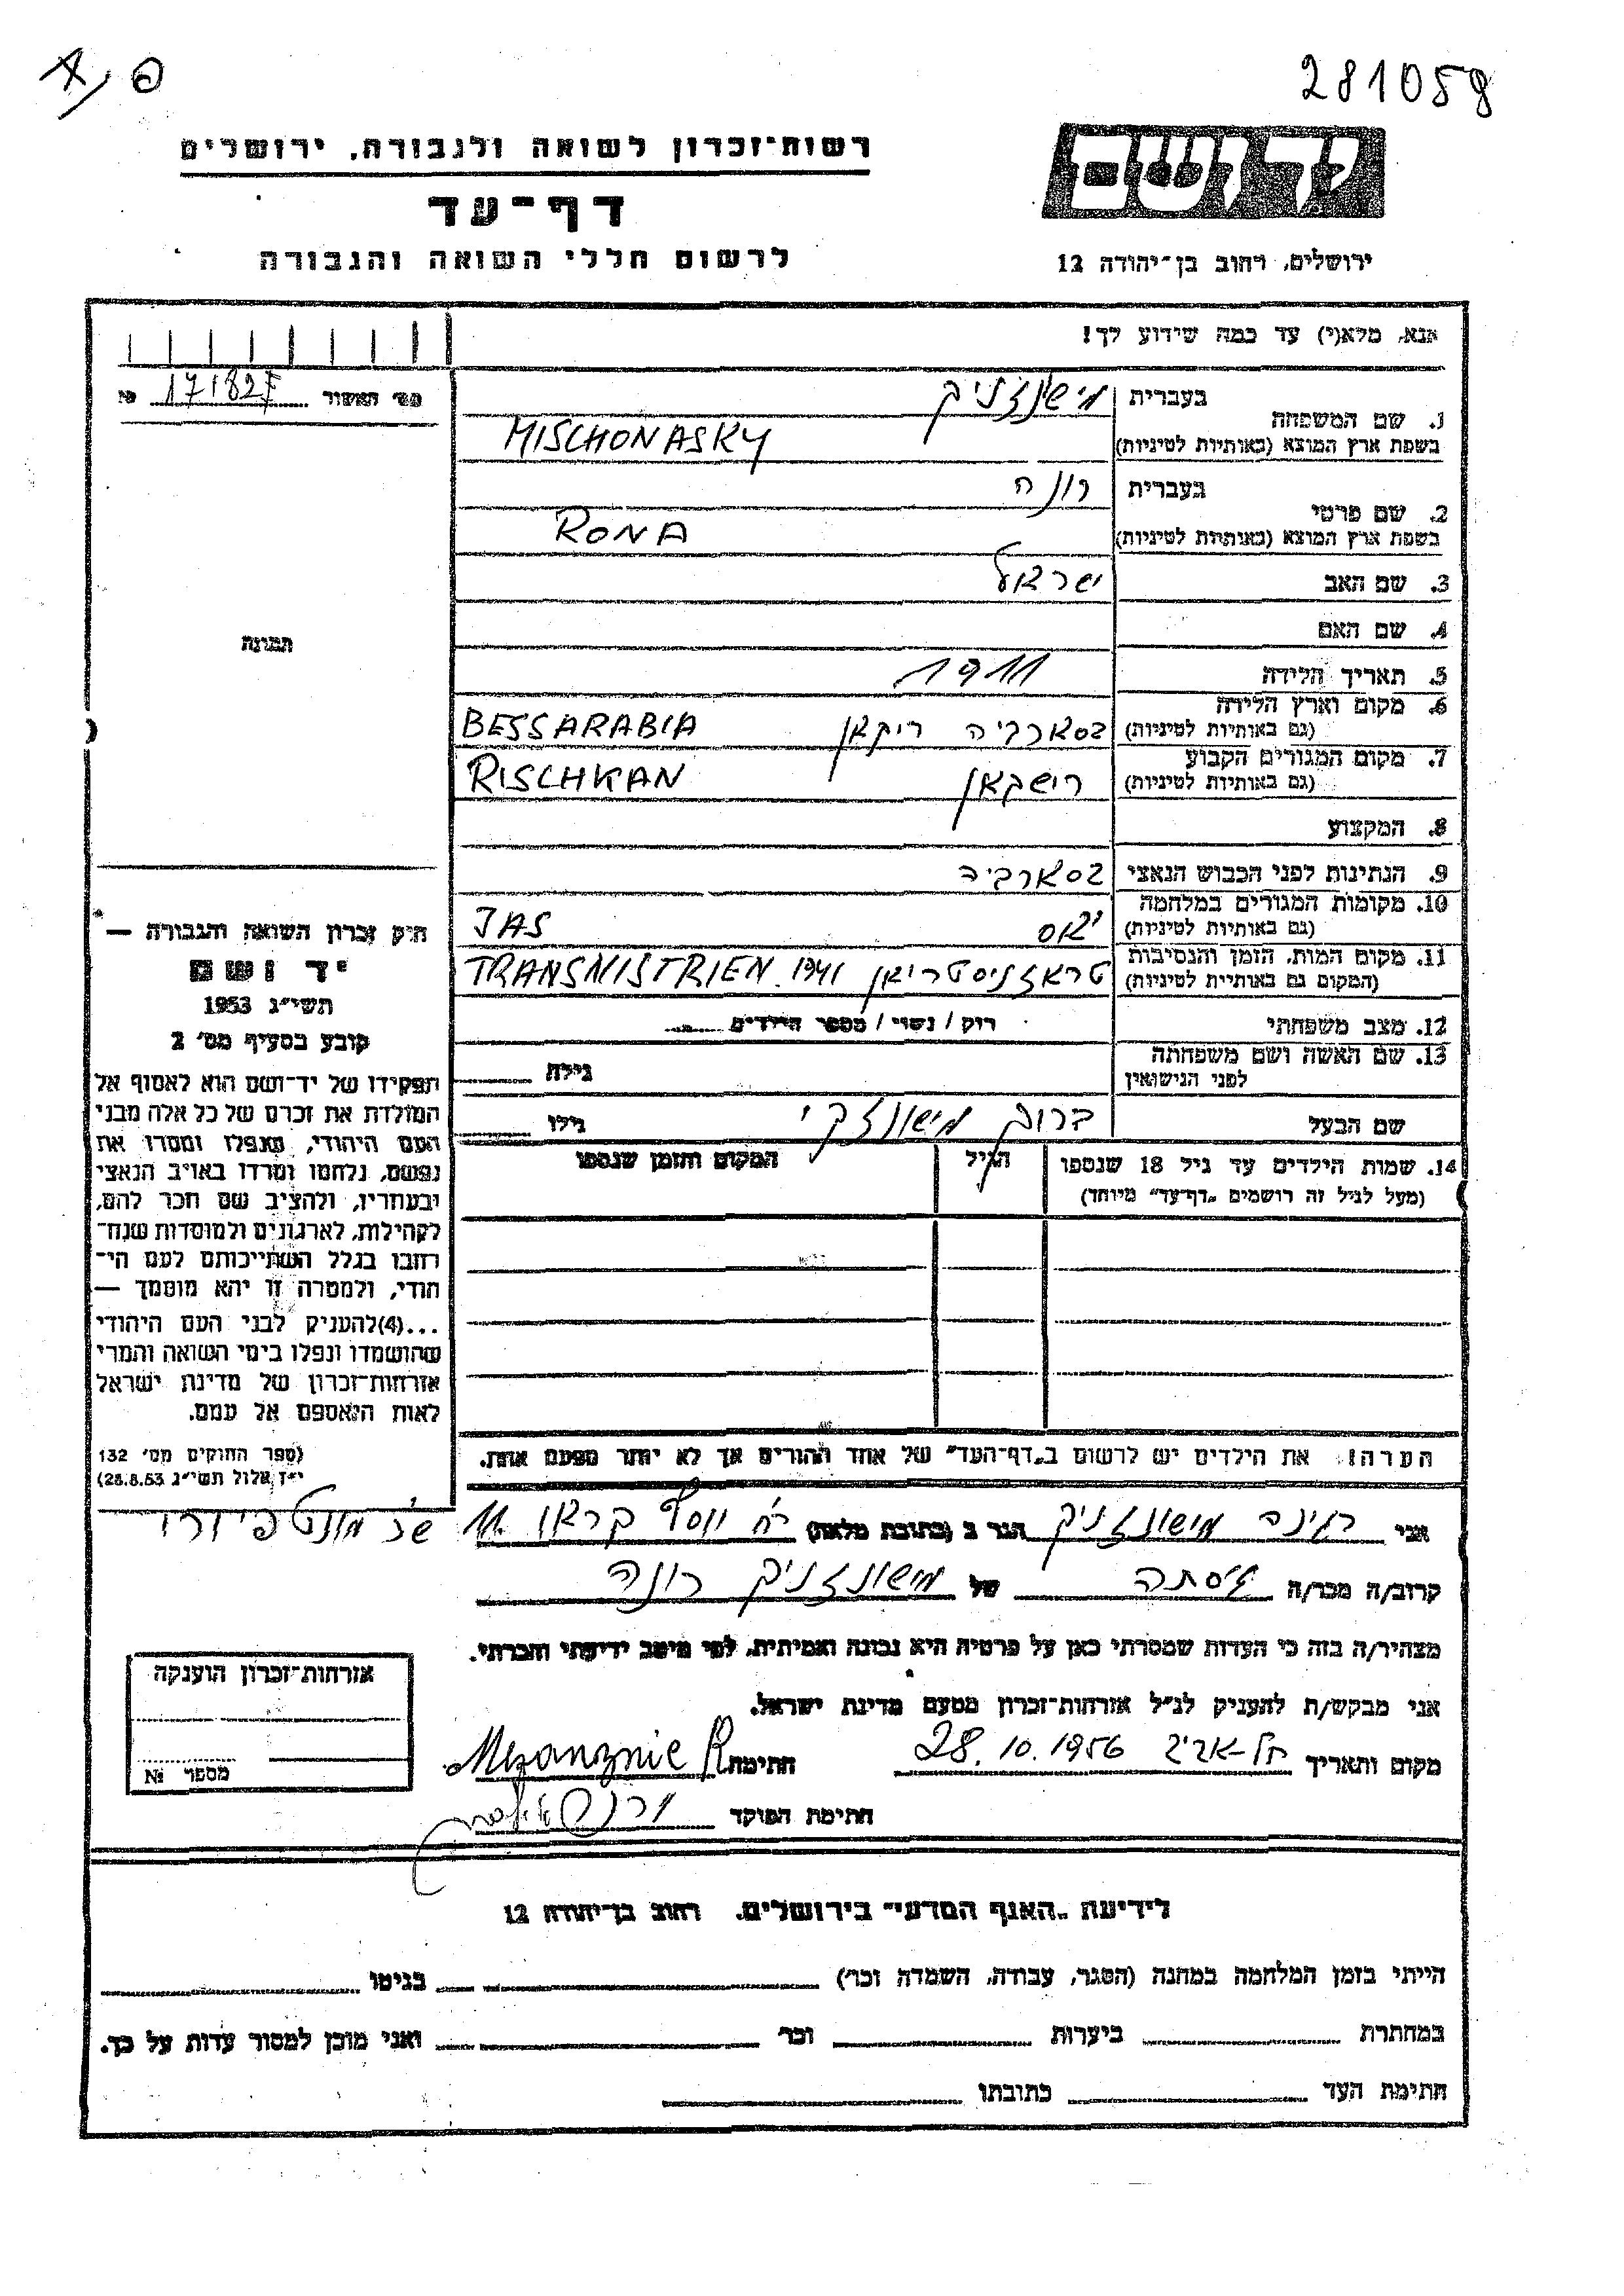 281059
רשות־זכרון לשואה ולגבורה, ירושלים
דף־עד
לרשום חללי השואה והגבורה
יד ושם
ירושלים, רחוב בן־יהודה 12
אנא, מלא(י) עד כמה שידוע לך!
מס׳ האשור 171827 №
תמונה
1. שם המשפחה
בעברית
בשפת ארץ המוצא (באותיות לטיניות)
MISCHONASKY
2. שם פרטי
בעברית רונה
בשפת ארץ המוצא (באותיות לטיניות)
RONA
3. שם האב ישראל
4. שם האם
5. תאריך הלידה 1911
6. מקום וארץ הלידה
(גם באותיות לטיניות) בסארביה ריקאן BESSARABIA
7. מקום המגורים הקבוע
(גם באותיות לטיניות) רישקאן RISCHKAN
8. המקצוע
9. הנתינות לפני הכבוש הנאצי בסארביה
10. מקומות המגורים במלחמה
(גם באותיות לטיניות) יאס JAS
11. מקום המות, הזמן והנסיבות
(המקום גם באותיות לטיניות) טראזניסטריאן 1941 TRANSNISTRIEN
12. מצב משפחתי רוק / נשוי / מספר הילדים
13. שם האשה ושם משפחתה
לפני הנישואין גילה
שם הבעל ברוך מישונזקי גילו
14. שמות הילדים עד גיל 18 שנספו הגיל המקום והזמן שנספו
(מעל לגיל זה רושמים „דף־עד״ מיוחד)
הערה: את הילדים יש לרשום ב„דף־העד״ של אחד ההורים אך לא יותר מפעם אחת.
חוק זכרון השואה והגבורה —
יד ושם
תשי״ג 1953
קובע בסעיף מס׳ 2
תפקידו של יד־ושם הוא לאסוף אל
המולדת את זכרם של כל אלה מבני
העם היהודי, שנפלו ומסרו את
נפשם, נלחמו ומרדו באויב הנאצי
ובעוזריו, ולהציב שם וזכר להם,
לקהילות, לארגונים ולמוסדות שנח־
רבו בגלל השתייכותם לעם הי־
הודי, ולמטרה זו יהא מוסמך —
...(4)להעניק לבני העם היהודי
שהושמדו ונפלו בימי השואה והמרי
אזרחות־זכרון של מדינת ישראל
לאות היאספם אל עמם.
(ספר החוקים מס׳ 132
י״ז אלול תשי״ג 28.8.53)
אני רגינה מישונזניק הגר ב (כתובת מלאה) רח׳ יוסף קראו 11 שכ׳ מונטפיורי
קרוב/ה מכר/ה גיסתה של מישונזניק רונה
מצהיר/ה בזה כי העדות שמסרתי כאן על פרטיה היא נכונה ואמיתית, לפי מיטב ידיעתי והכרתי.
אני מבקש/ת להעניק לנ״ל אזרחות־זכרון מטעם מדינת ישראל.
מקום ותאריך תל־אביב 28.10.1956 חתימה
חתימת הפוקד
אזרחות־זכרון הוענקה
מספר №
לידיעת „האגף המדעי״ בירושלים, רחוב בן־יהודה 12
הייתי בזמן המלחמה במחנה (הסגר, עבודה, השמדה וכר׳) בגיטו
במחתרת ביערות וכר׳ ואני מוכן למסור עדות על כך.
חתימת העד כתובתו